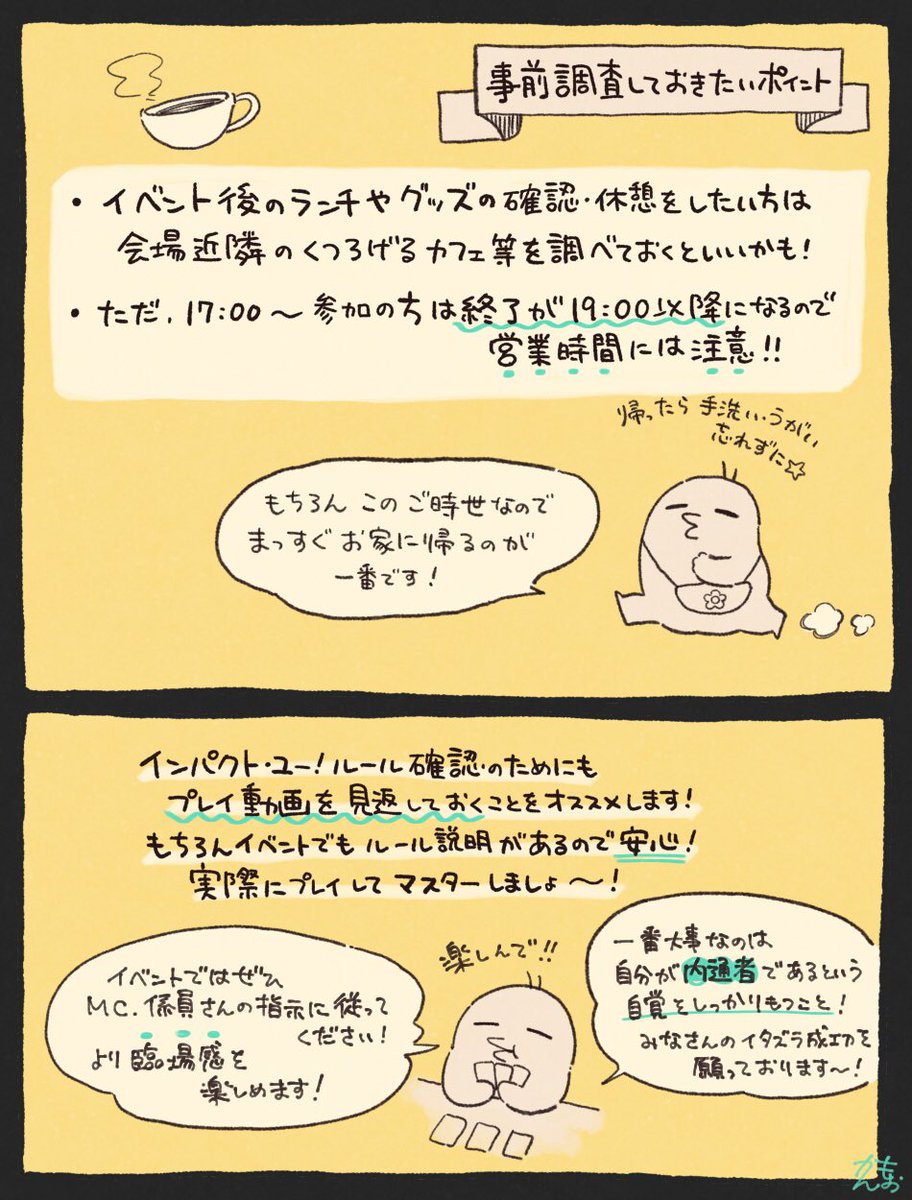 事前調査しておきたいポイント
・イベント後のランチやグッズの確認・休憩をしたい方は
会場近隣のくつろげるカフェ等を調べておくといいかも!
・ただ、17:00〜参加の方は終了が19:00以降になるので
営業時間には注意!!
帰ったら手洗い・うがい
忘れずに☆
もちろんこのご時世なので
まっすぐお家に帰るのが
一番です!
インパクト・ユー!ルール確認のためにも
プレイ動画を見返しておくことをオススメします!
もちろんイベントでもルール説明があるので安心!
実際にプレイしてマスターしましょ〜!
楽しんで!!
イベントではぜひ
MC.係員さんの指示に従って
ください!
より臨場感を
楽しめます!
一番大事なのは
自分が内通者であるという
自覚をしっかりもつこと!
みなさんのイタズラ成功を
願っております〜!